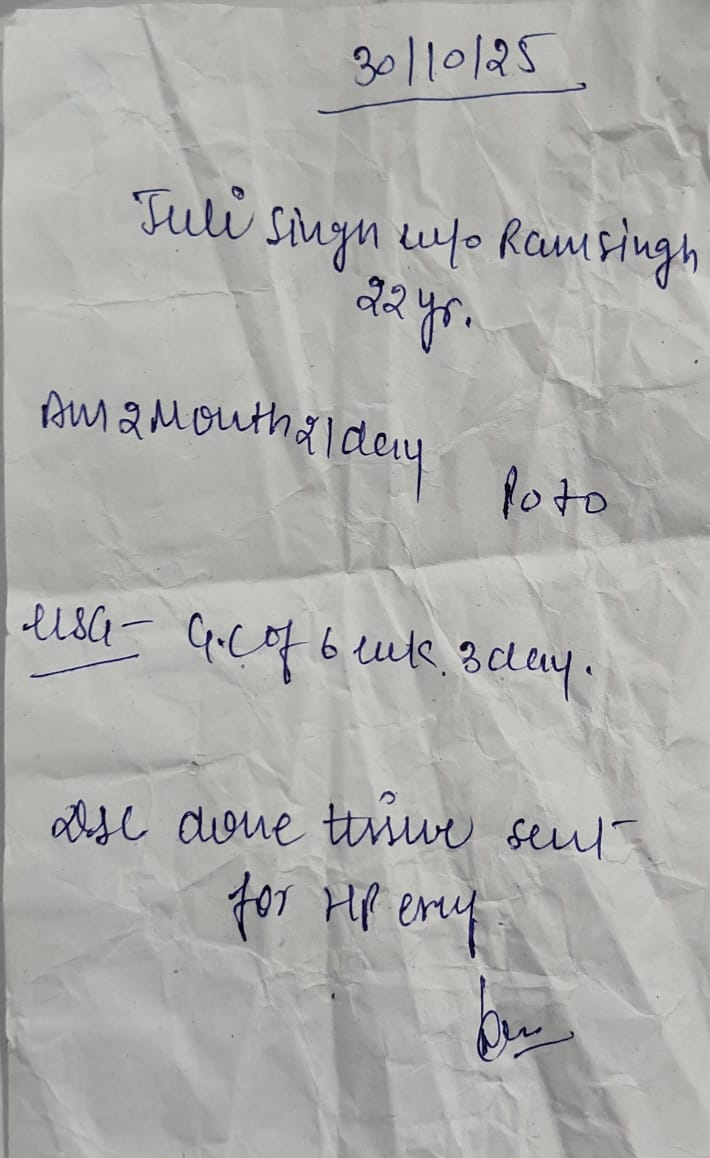 30/10/25
Juli Singh w/o Ramsingh
22 yr.
Am 2 Month 21 day
P0+0
USG - G.C of 6 wk. 3 day.
D&C done tissue sent
for HP exmy